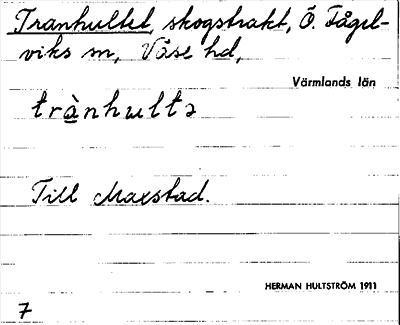 Tranhultet, skogstrakt, Ö. Fågel-
viks sn, Väse hd,
Värmlands län
trànhultə
Till Maxstad.
HERMAN HULTSTRÖM 1911
7